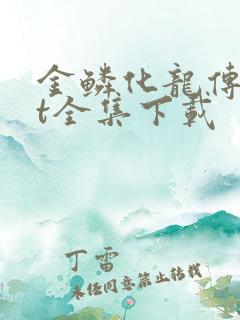 金鳞化龍傳
t全集下載
丁雷
未經同意禁止轉載